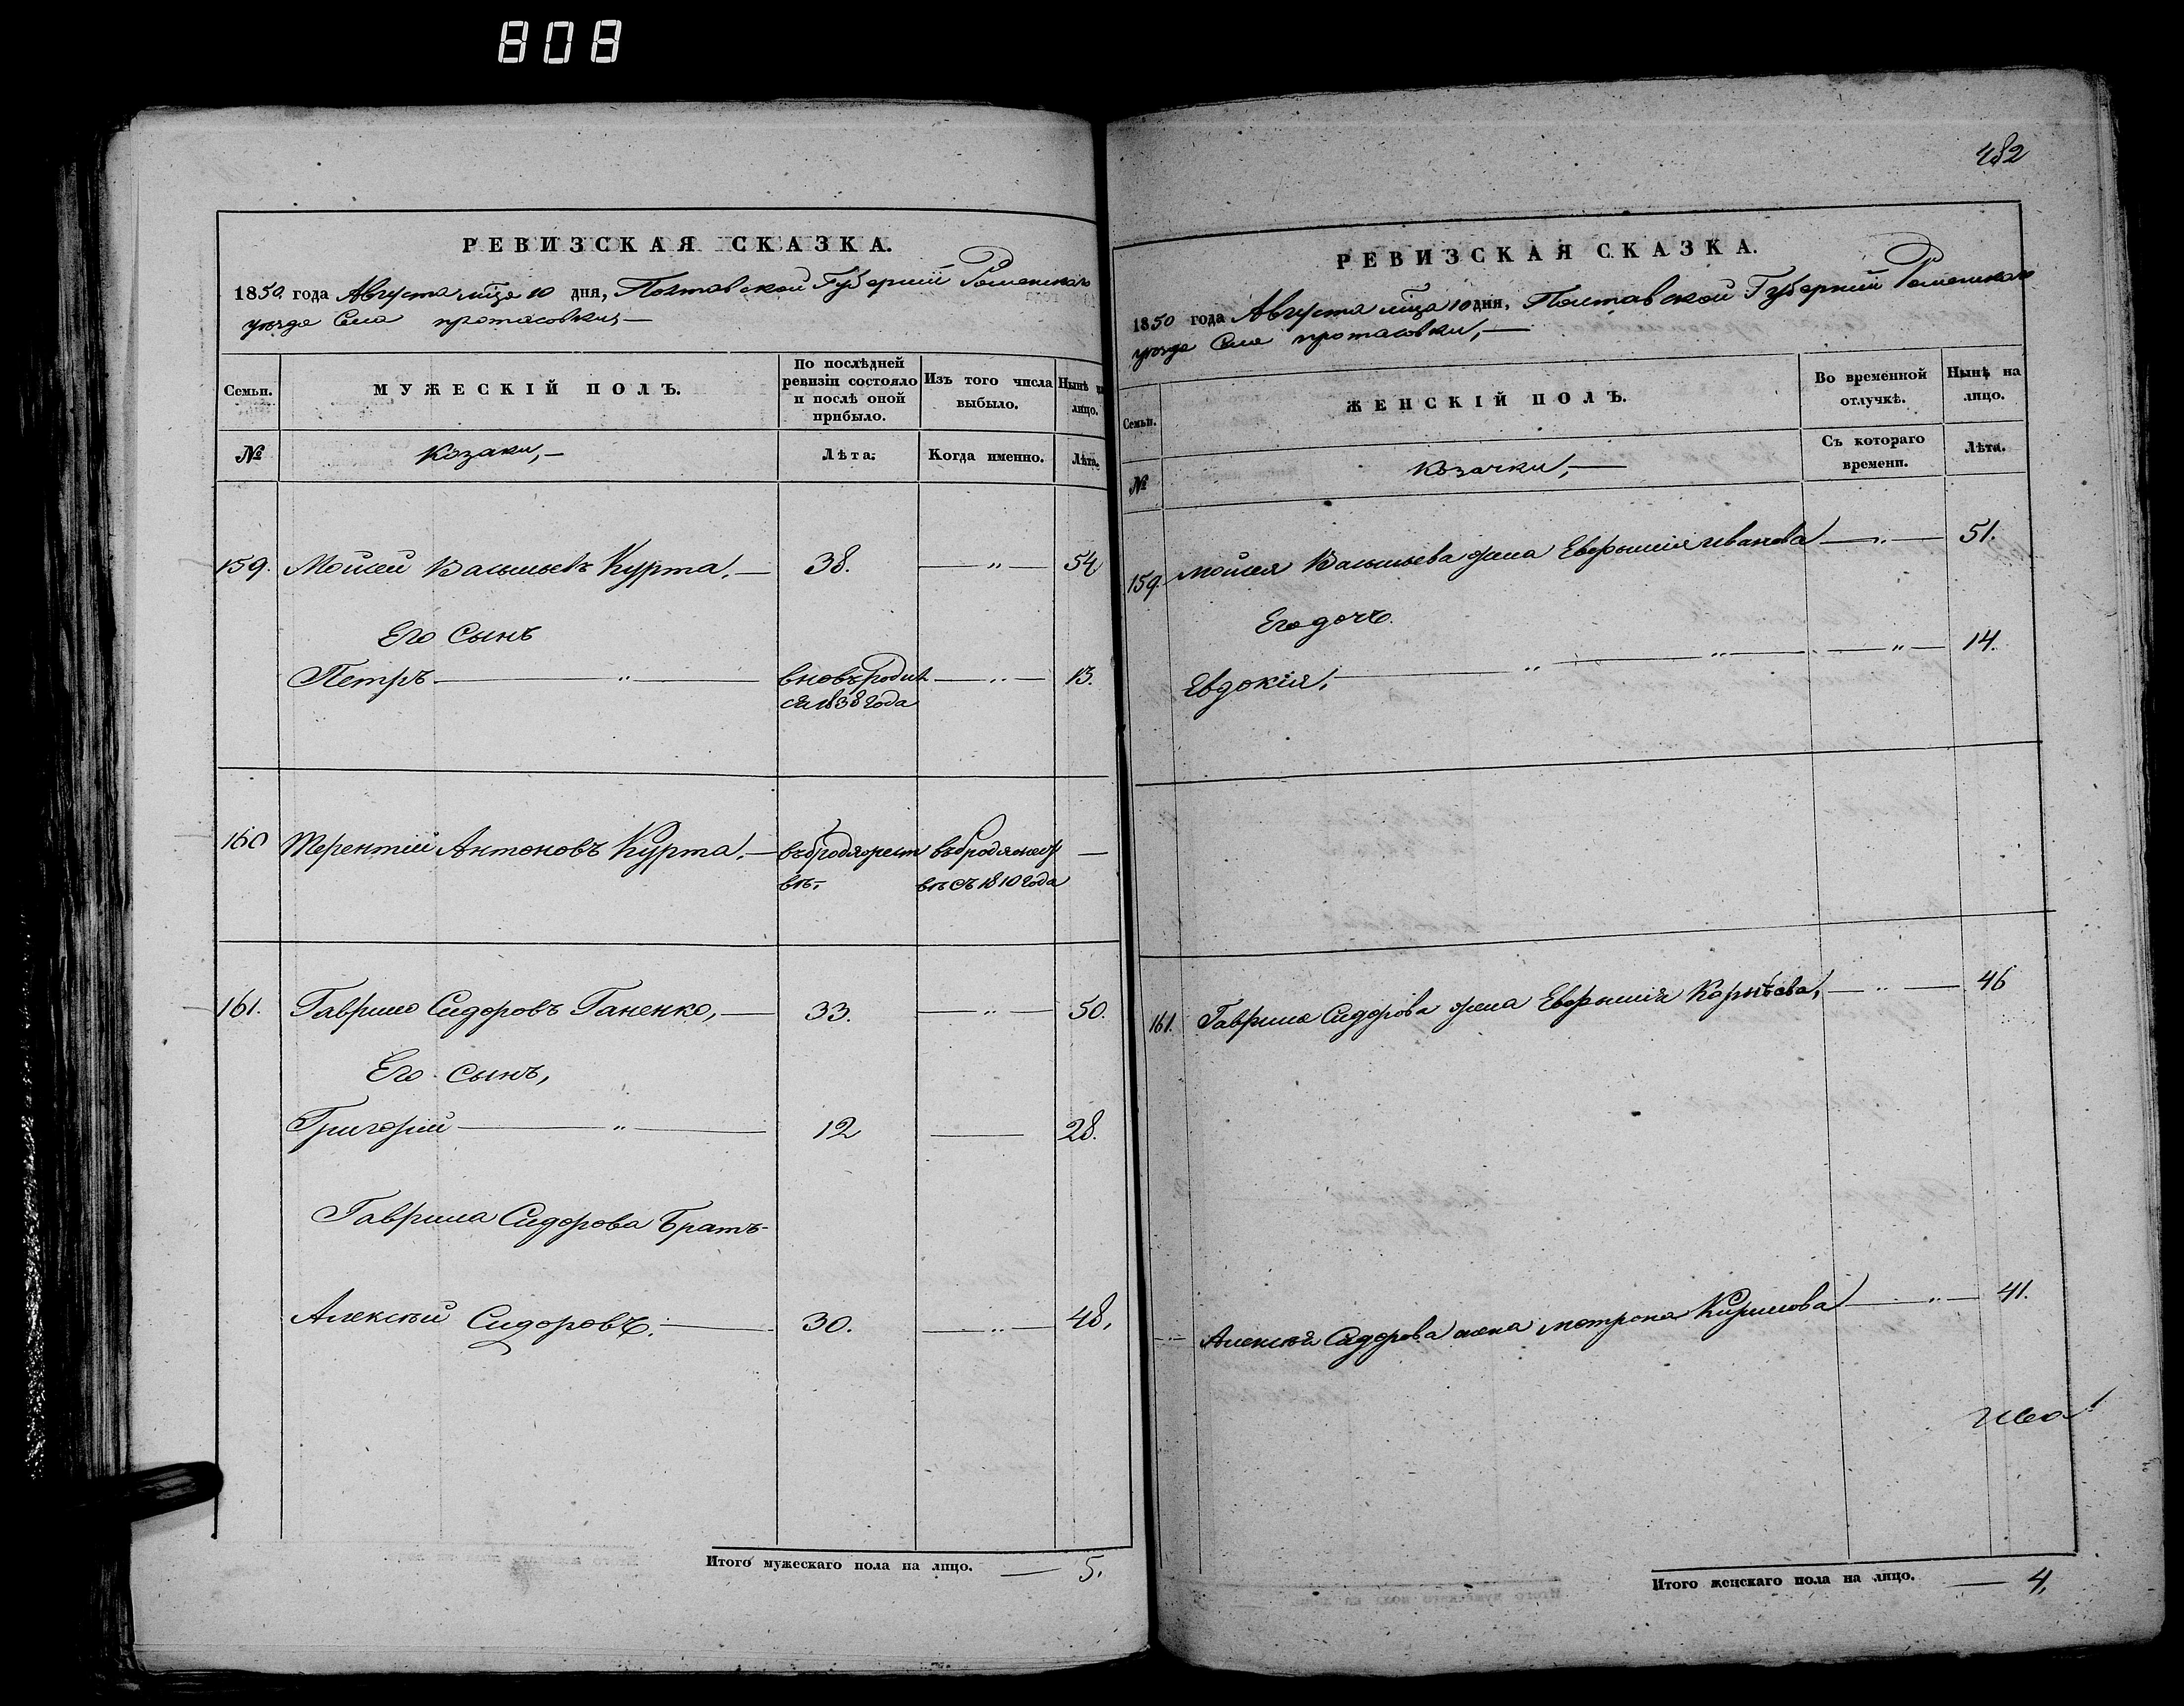 808
РЕВИЗСКАЯ СКАЗКА.
1850 года Августа мца 10 дня, Полтавской Губернии Роменскаго
уезда Села протасовки,—
Семьи.
МУЖЕСКІЙ ПОЛЪ.
По послѣдней ревизіи состояло и послѣ оной прибыло.
Изъ того числа выбыло.
Нынѣ на лицо.
№
Козаки,—
Лѣта.
Когда именно.
Лѣта.
159. Мойсей Васильевъ Курта.— 38. —"— 54
Его Сынъ
Петръ —"— вновь родил —"— 13.
ся 1838 года
160 Терентій Антоновъ Курта.— въ бродяжест въ бродяжест —
вѣ,- вѣ съ 1810 года
161. Гаврило Сидоровъ Ганенко,— 33. —"— 50.
Его Сынъ,
Григорій —"— 12 — 28.
Гаврила Сидорова Братъ-
Алексѣй Сидоровъ.— 30. —"— 48.
Итого мужескаго пола на лицо. — 5.
482
РЕВИЗСКАЯ СКАЗКА.
1850 года Августа мца 10 дня, Полтавской Губернии Роменскаго
уезда Села протасовки,—
Семьи.
ЖЕНСКІЙ ПОЛЪ.
Во временной отлучкѣ.
Нынѣ на лицо.
№
Козачки,—
Съ котораго времени.
Лѣта.
159. Мойсея Васильева жена Евфросинія Иванова —"— 51.
Его дочь
Евдокія, —"—"—"— 14.
161. Гаврила Сидорова жена Евфросинія Корнѣева, —"— 46
—"— Алексѣя Сидорова жена Мотрона Кирилова —"— 41.
Итого женскаго пола на лицо. — 4.